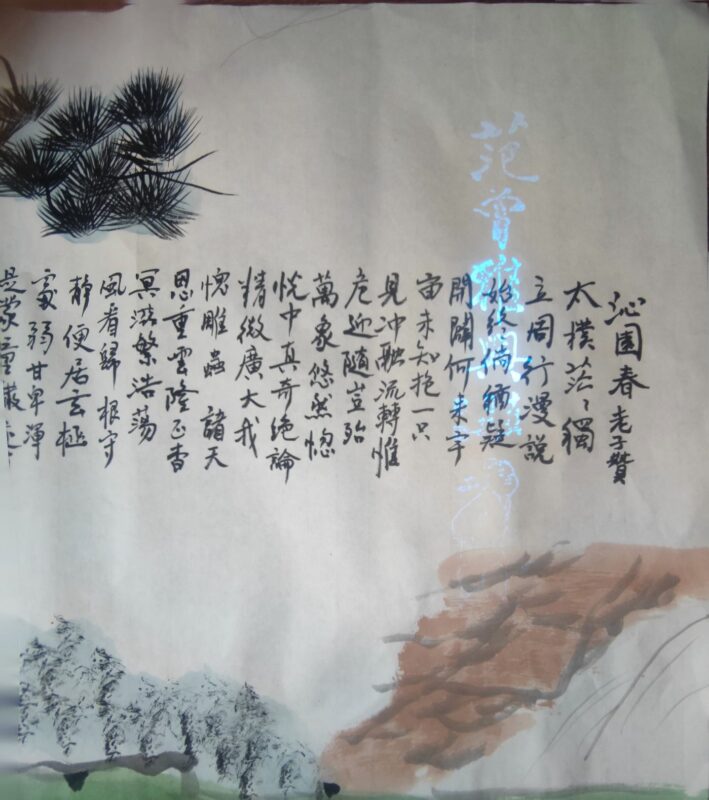 沁園春 老子贊
太樸茫、獨
立周行漫說
始終倘猶疑
開闢何来宇
宙未知抱一只
見冲融流轉惟
危迎隨豈殆
萬象悠然惚
恍中真奇絶論
精微廣大我
愧雕蟲 諸天
恩重雲隆正杳
冥游繁浩蕩
風看歸根守
静便居玄極
處弱甘卑渾
是蒙童
范曾